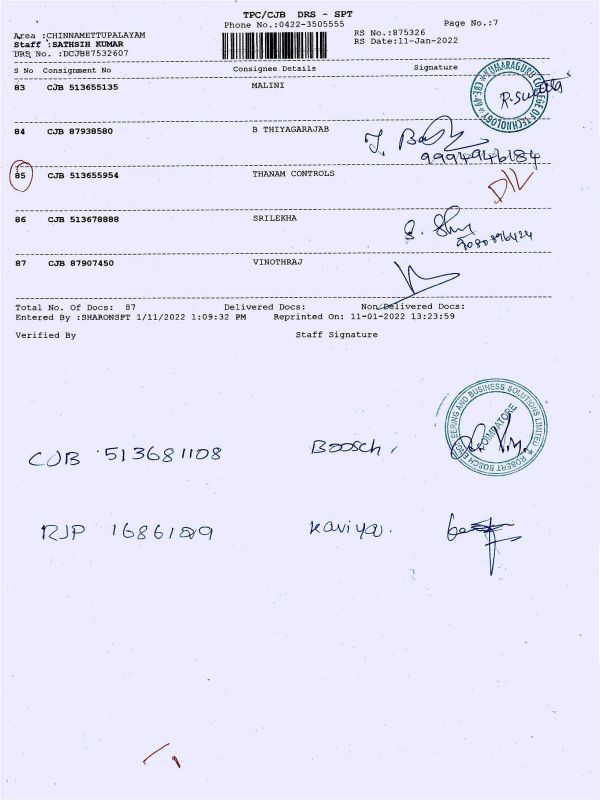 TPC/CJB DRS - SPT
Phone No.:0422-3505555
Page No.:7
Area :CHINNAMETTUPALAYAM
RS No.:875326
Staff :SATHSIH KUMAR
RS Date:11-Jan-2022
DRS No. :DCJB87532607
S No Consignment No Consignee Details Signature
83 CJB 513655135 MALINI
84 CJB 87938580 B THIYAGARAJAB
9994946184
85 CJB 513655954 THANAM CONTROLS
86 CJB 513678888 SRILEKHA
87 CJB 87907450 VINOTHRAJ
Total No. Of Docs: 87 Delivered Docs: Non Delivered Docs:
Entered By :SHARONSPT 1/11/2022 1:09:32 PM Reprinted On: 11-01-2022 13:23:59
Verified By Staff Signature
ROBERT BOSCH ENGINEERING AND BUSINESS SOLUTIONS LIMITED
COIMBATORE
CJB 513681108 Boosch,
RJP Kaviya.